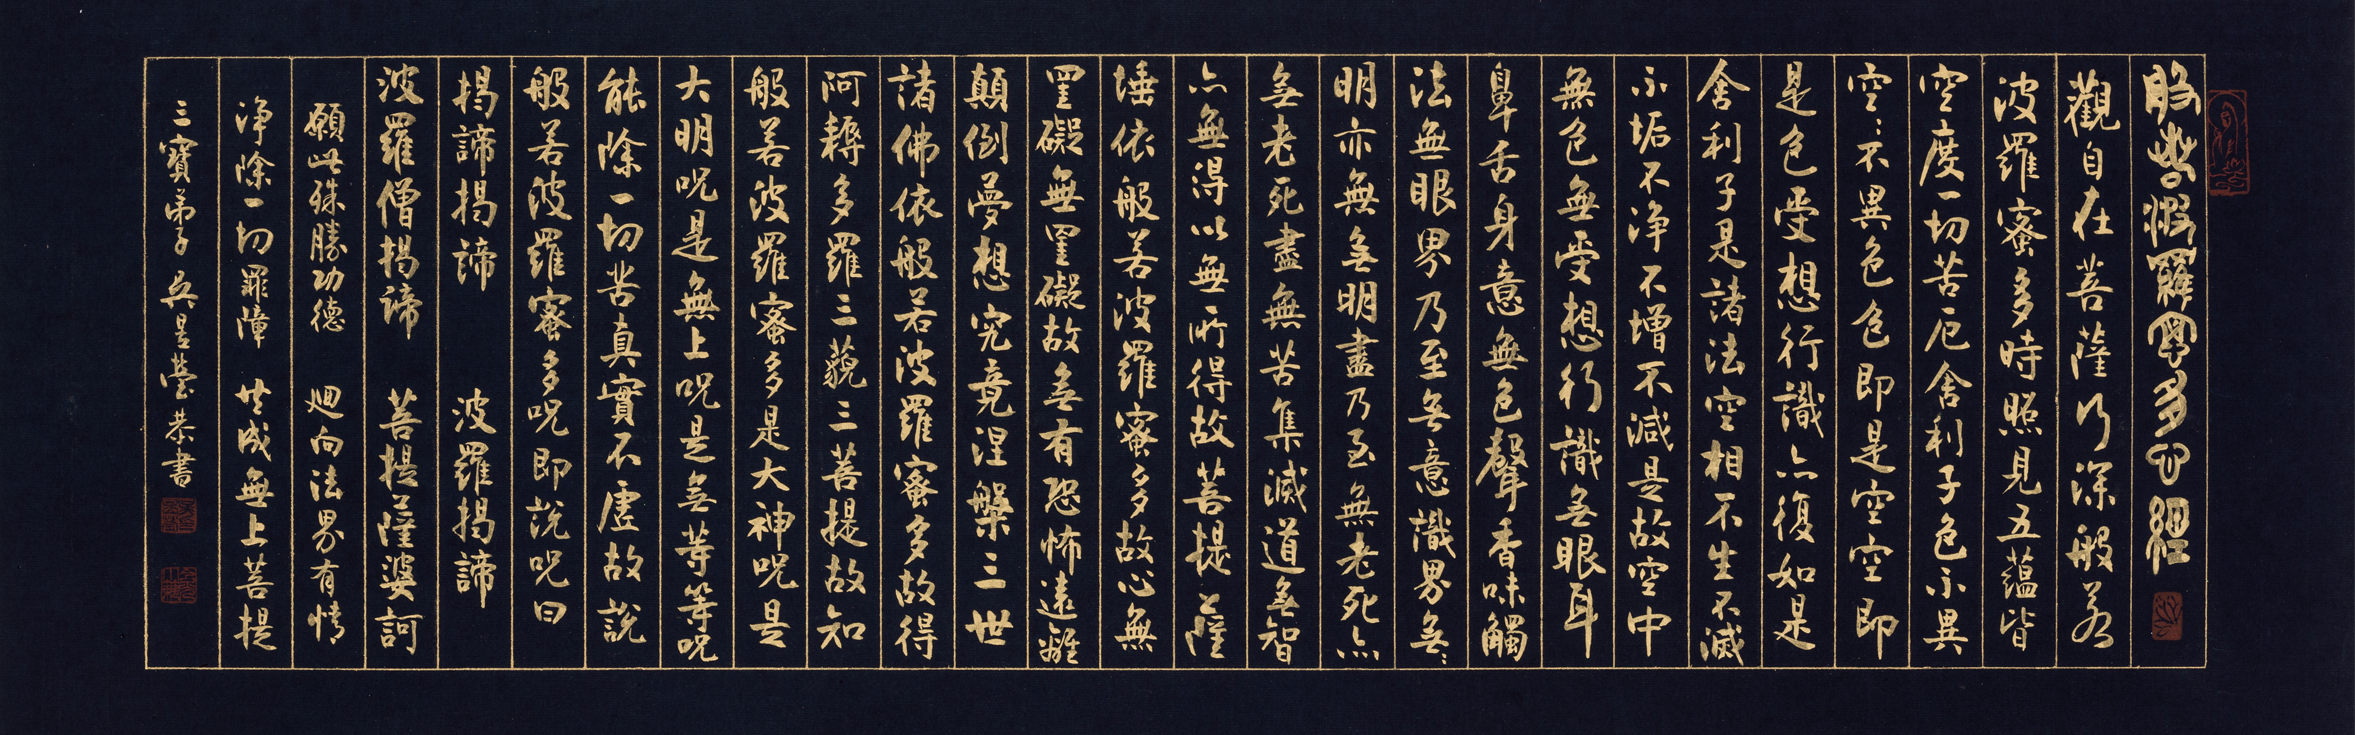 般若波羅蜜多心經
觀自在菩薩行深般若
波羅蜜多時照見五蘊皆
空度一切苦厄舍利子色不異
空〻不異色色即是空空即
是色受想行識亦復如是
舍利子是諸法空相不生不滅
不垢不淨不增不減是故空中
無色無受想行識無眼耳
鼻舌身意無色聲香味觸
法無眼界乃至無意識界無〻
明亦無無明盡乃至無老死亦
無老死盡無苦集滅道無智
亦無得以無所得故菩提薩
埵依般若波羅蜜多故心無
罣礙無罣礙故無有恐怖遠離
顛倒夢想究竟涅槃三世
諸佛依般若波羅蜜多故得
阿耨多羅三藐三菩提故知
般若波羅蜜多是大神呪是
大明呪是無上呪是無等等呪
能除一切苦真實不虛故說
般若波羅蜜多呪即說呪曰
揭諦揭諦 波羅揭諦
波羅僧揭諦 菩提薩婆訶
願此殊勝功德 迴向法界有情
淨除一切罪障 共成無上菩提
三寶弟子吳昱瑩恭書